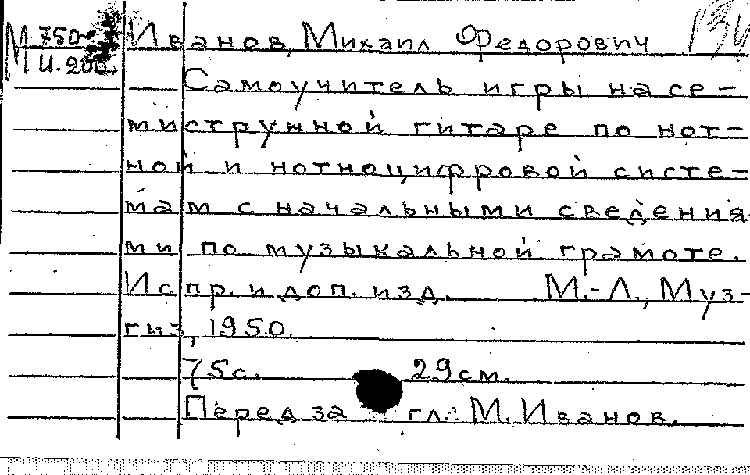 М 750 Иванов, Михаил Федорович
И. 200 Самоучитель игры на се-
миструнной гитаре по нот-
ной и нотноцифровой систе-
мам с начальными сведения
ми по музыкальной грамоте.
Испр. и доп. изд. М.-Л., Муз-
гиз, 1950.
75с. 29см.
Перед за гл.: М. Иванов.